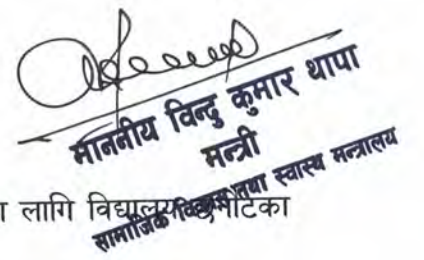 माननीय विन्दु कुमार थापा
मन्त्री
सामाजिक विकास तथा स्वास्थ मन्त्रालय
ा लागि विद्यालय